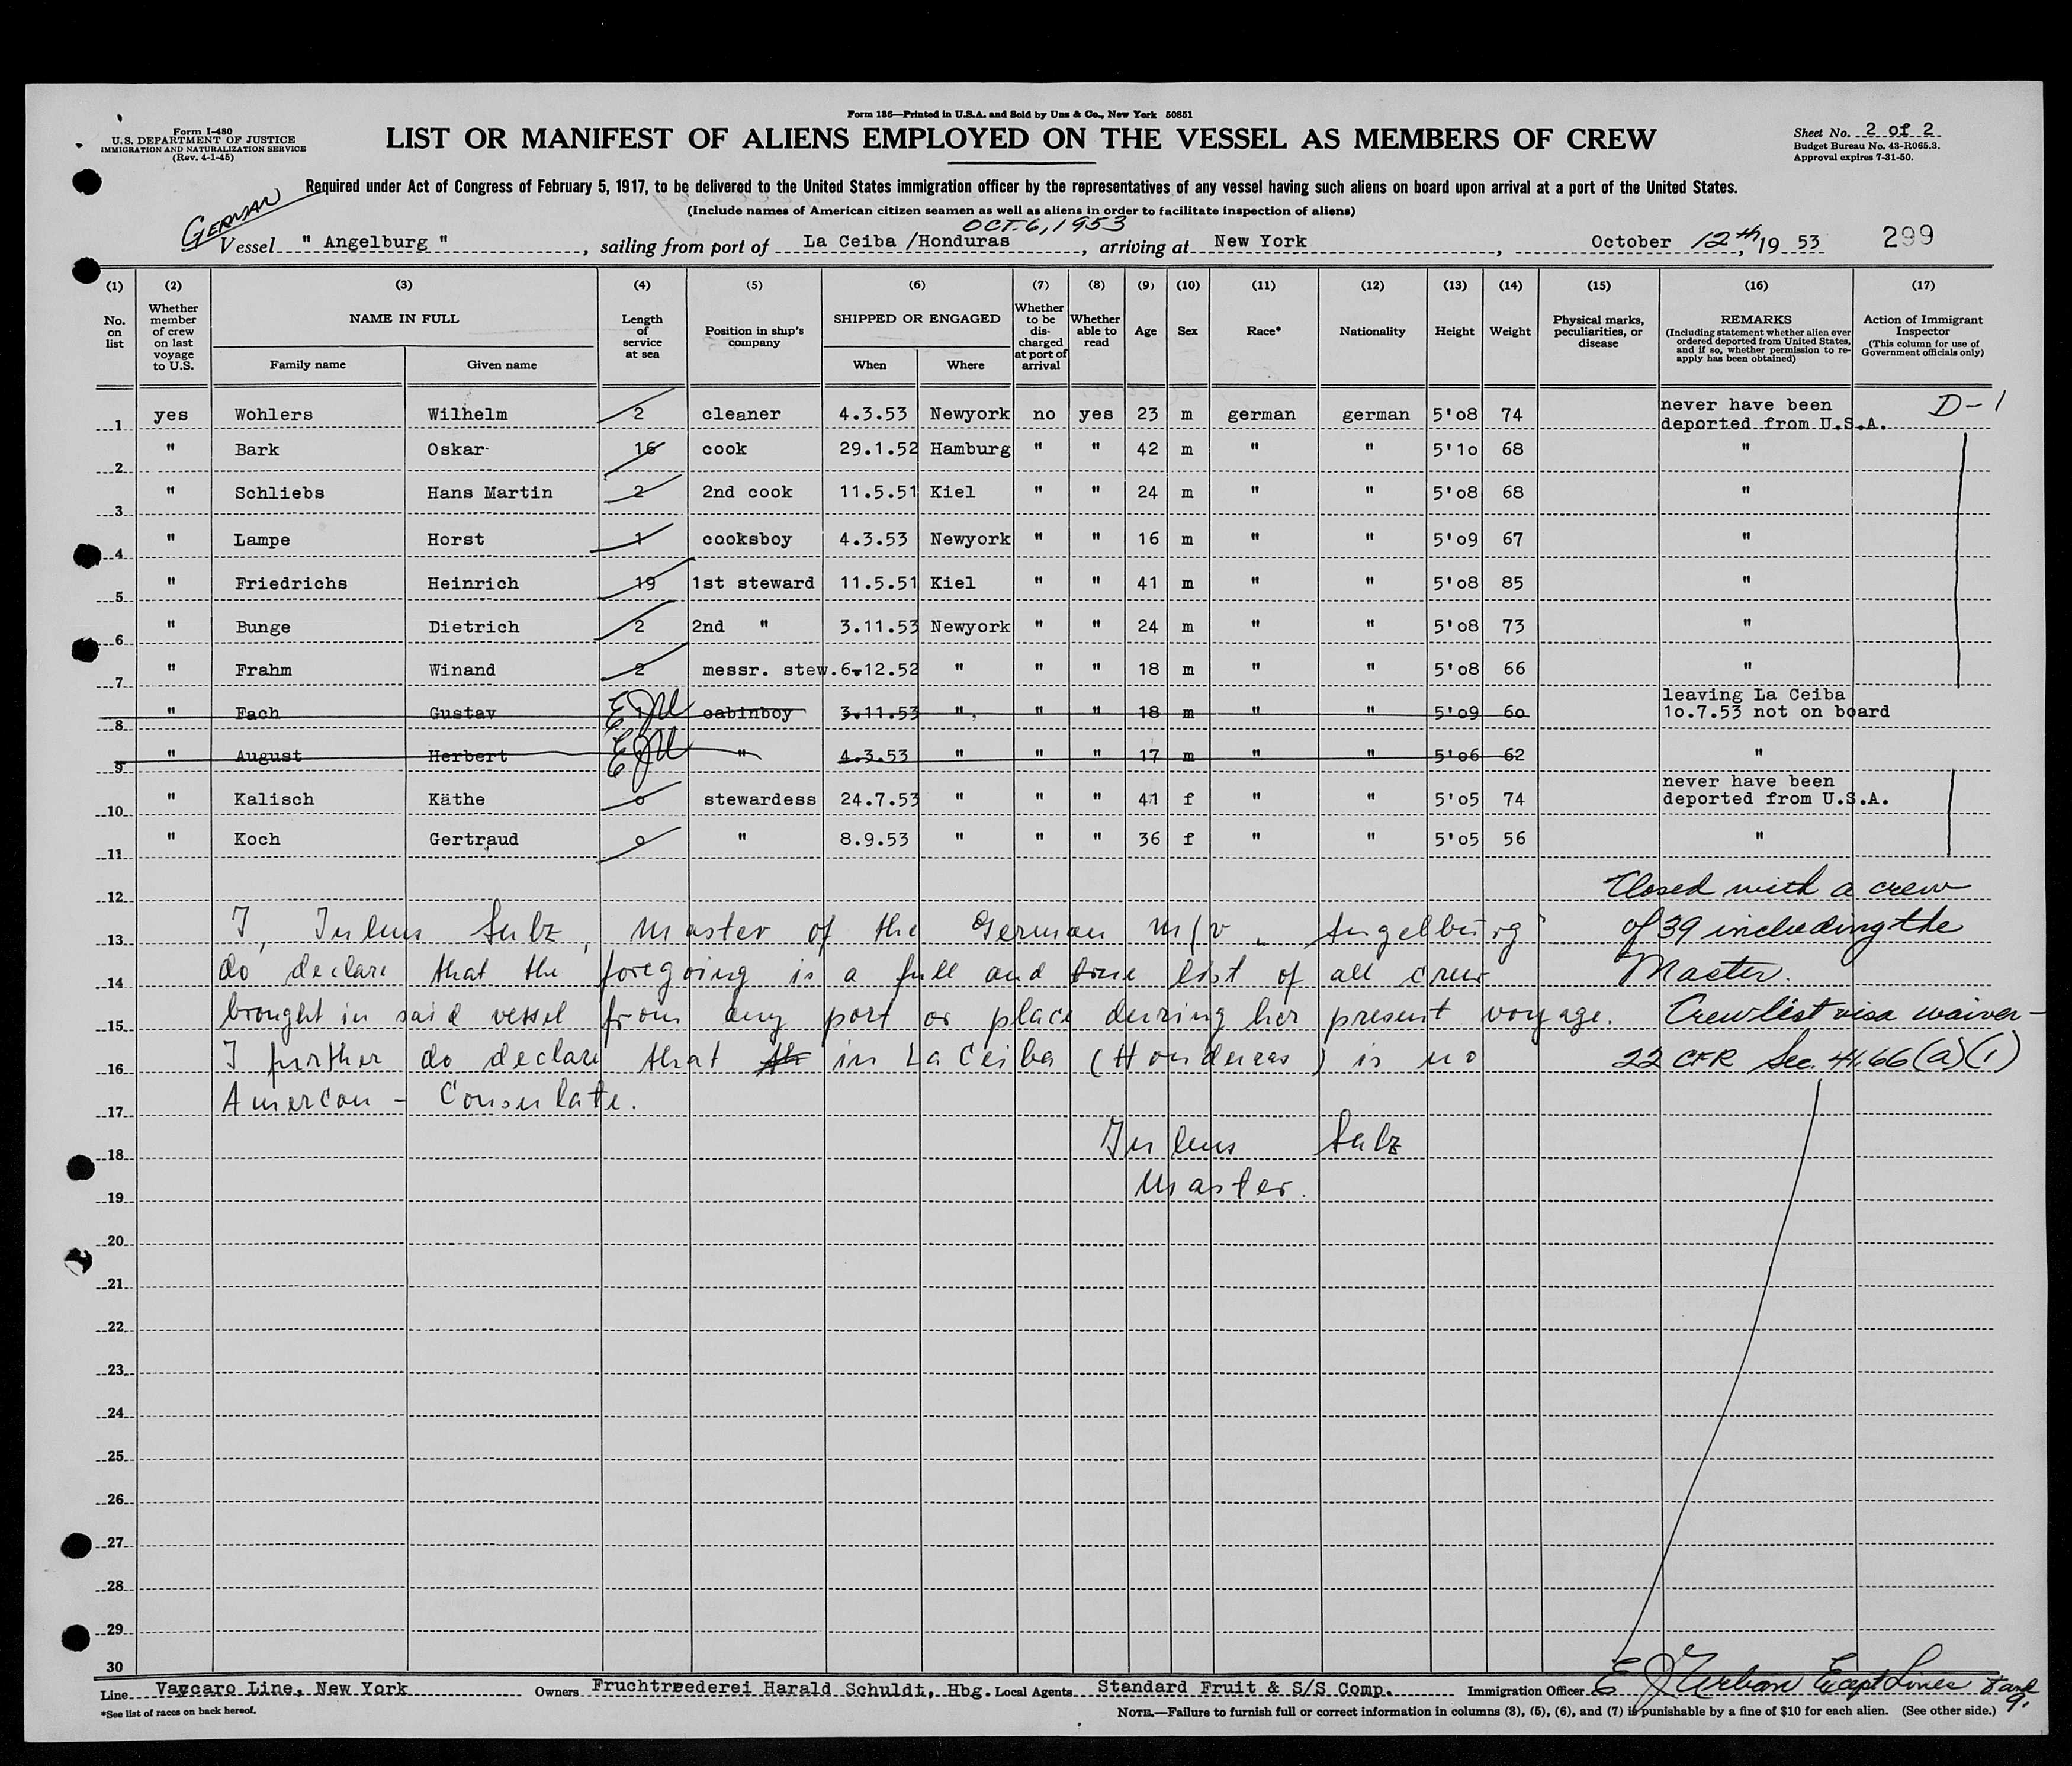 Form 186—Printed in U.S.A. and Sold by Uns & Co., New York 50851
Form I-480
U.S. DEPARTMENT OF JUSTICE
IMMIGRATION AND NATURALIZATION SERVICE
(Rev. 4-1-45)
LIST OR MANIFEST OF ALIENS EMPLOYED ON THE VESSEL AS MEMBERS OF CREW
Sheet No. 2 of 2
Budget Bureau No. 43-R065.3.
Approval expires 7-31-50.
Required under Act of Congress of February 5, 1917, to be delivered to the United States immigration officer by the representatives of any vessel having such aliens on board upon arrival at a port of the United States.
(Include names of American citizen seamen as well as aliens in order to facilitate inspection of aliens)
GERMAN
OCT. 6, 1953
Vessel " Angelburg ", sailing from port of La Ceiba /Honduras, arriving at New York, October 12th, 19 53 299
(1) No. on list
(2) Whether member of crew on last voyage to U.S.
(3) NAME IN FULL Family name Given name
(4) Length of service at sea
(5) Position in ship's company
(6) SHIPPED OR ENGAGED When Where
(7) Whether to be discharged at port of arrival
(8) Whether able to read
(9) Age
(10) Sex
(11) Race*
(12) Nationality
(13) Height
(14) Weight
(15) Physical marks, peculiarities, or disease
(16) REMARKS (Including statement whether alien ever ordered deported from United States, and if so, whether permission to re-apply has been obtained)
(17) Action of Immigrant Inspector (This column for use of Government officials only)
1 yes Wohlers Wilhelm 2 cleaner 4.3.53 Newyork no yes 23 m german german 5'08 74 never have been deported from U.S.A. D-1
2 " Bark Oskar 16 cook 29.1.52 Hamburg " " 42 m " " 5'10 68 "
3 " Schliebs Hans Martin 2 2nd cook 11.5.51 Kiel " " 24 m " " 5'08 68 "
4 " Lampe Horst 1 cooksboy 4.3.53 Newyork " " 16 m " " 5'09 67 "
5 " Friedrichs Heinrich 19 1st steward 11.5.51 Kiel " " 41 m " " 5'08 85 "
6 " Bunge Dietrich 2 2nd " 3.11.53 Newyork " " 24 m " " 5'08 73 "
7 " Frahm Winand 2 messr. stew. 6.12.52 " " " 18 m " " 5'08 66 "
8 " Fach Gustav EJU cabinboy 3.11.53 " " " 18 m " " 5'09 60 leaving La Ceiba 10.7.53 not on board
9 " August Herbert EJU " 4.3.53 " " " 17 m " " 5'06 62 "
10 " Kalisch Käthe 0 stewardess 24.7.53 " " " 41 f " " 5'05 74 never have been deported from U.S.A.
11 " Koch Gertraud 0 " 8.9.53 " " " 36 f " " 5'05 56 "
12 Closed with a crew
13 I, Julius Sulz, Master of the German m/v „ Angelburg" of 39 including the
14 do declare that the foregoing is a full and true list of all crew Master.
15 brought in said vessel from any port or place during her present voyage. Crew list visa waiver-
16 I further do declare that in La Ceiba (Honduras) is no 22 CFR Sec. 41.66(a)(1)
17 Amercan - Consulate.
18 Julius Sulz
19 Master.
20
21
22
23
24
25
26
27
28
29
30
Line Vaccaro Line, New York Owners Fruchtreederei Harald Schuldt, Hbg. Local Agents Standard Fruit & S/S Comp. Immigration Officer E J Urban Except Lines 8 and 9.
*See list of races on back hereof.
NOTE.—Failure to furnish full or correct information in columns (3), (5), (6), and (7) is punishable by a fine of $10 for each alien. (See other side.)